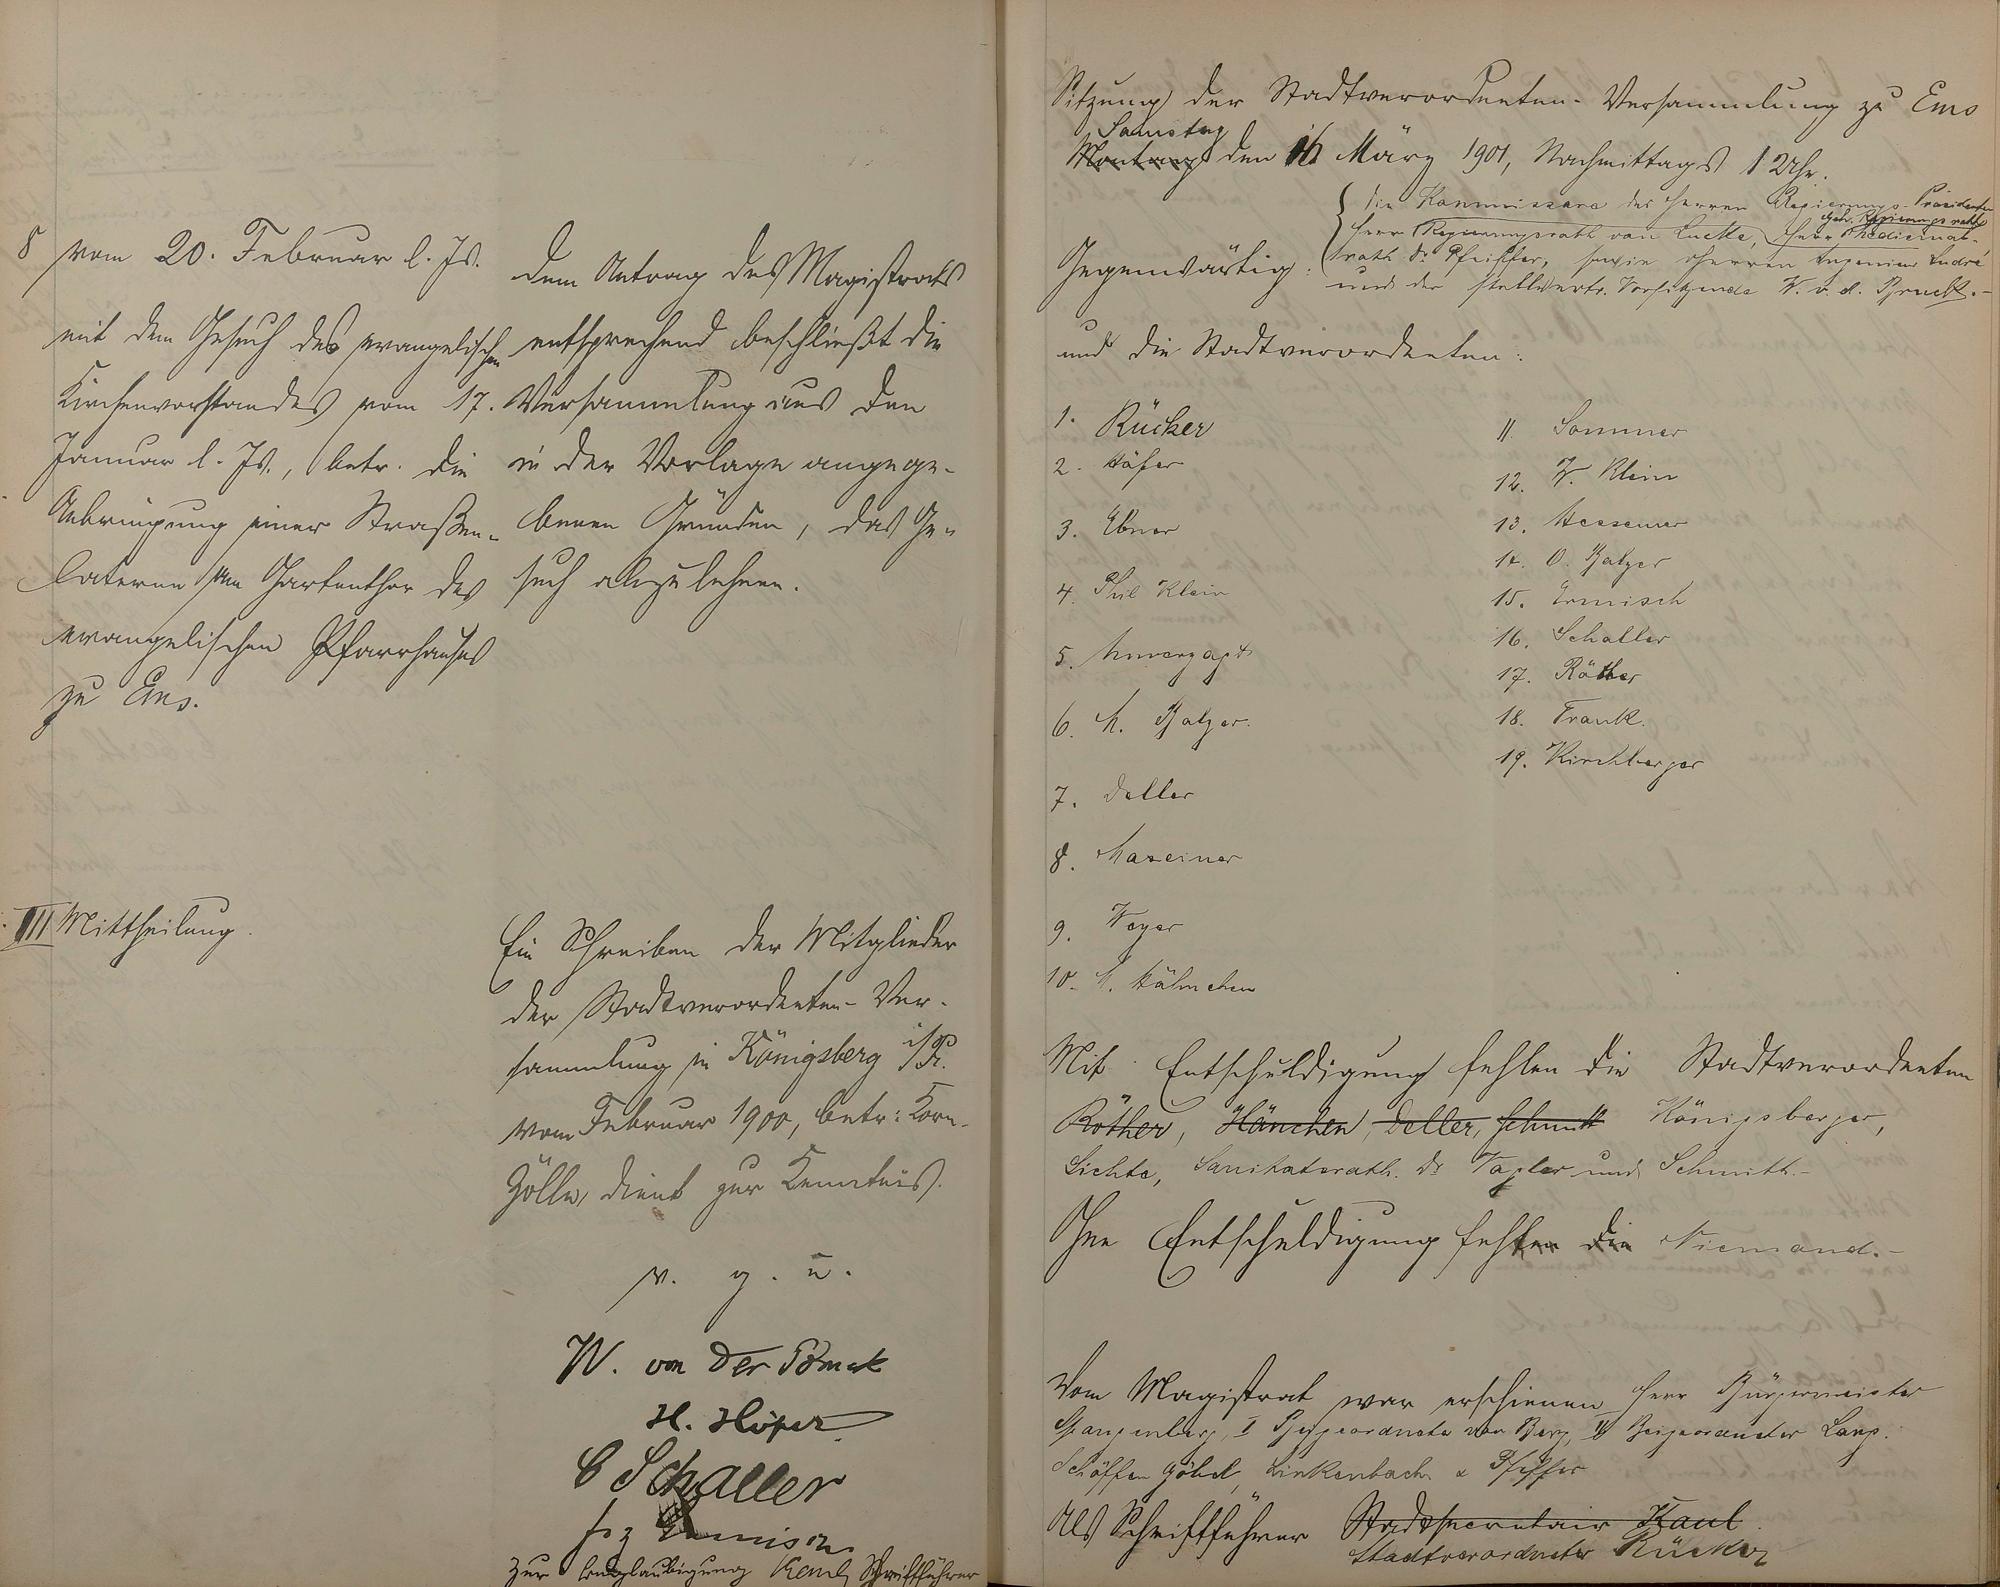 8 vom 20. Februar l. Js.
mit dem Gesuch des evangelischen
Kirchenvorstandes vom 17.
Januar l. Js., betr. die
Anbringung einer Straßen-
laterne am Gartenthor des
evangelischen Pfarrhauses
zu Ems.
Dem Antrag des Magistrats
entsprechend beschließt die
Versammlung aus den
in der Vorlage angege-
benen Gründen, das Ge-
such abzulehnen.
III Mittheilung.
Ein Schreiben der Mitglieder
der Stadtverordneten-Ver-
sammlung in Königsberg i/Pr.
vom Februar 1900, betr: Korn-
Zölle, dient zur Kenntnis.
v. g. u.
W. von der
H. Höfer
C Schaller
Zur Beglaubigung Kaul, Schriftführer
Sitzung der Stadtverordneten-Versammlung zu Ems
Samstag
Montag den 16 März 1901, Nachmittags 1 Uhr.
Gegenwärtig:
die Kommissare des Herrn Regierungs-Präsidenten
Geh. Regierungsrath
Herr Regierungsrath von Lucke, Herr Medicinal-
rath Dr Pfeiffer, sowie Herren Ingenieur André
und der stellvertr. Vorsitzende W. v. d. Bruck.-
und die Stadtverordneten:
1. Rücker
2. Höfer
3. Ebner
4. Phil Klein
5. Unverzagt
6. A. Balzer.
7. Deller
8. Maxeiner
9. Weyer
10. A. Hähnchen
11. Sommer
12. W. Klein
13. Messemer
14. O. Balzer
15. Ermisch
16. Schaller
17. Röther
18. Frank.
19. Kirchberger
Mit Entschuldigung fehlen die Stadtverordneten
Röther, Hänchen, Deller, Schmitt Königsberger,
Lichte, Sanitätsrath Dr und Schmith.-
Ohne Entschuldigung fehlen die Niemand.-
Vom Magistrat war erschienen Herr Bürgermeister
Spangenberg, I Beigeordnete von Berg, II Beigeordneter Lang.
Schöffen Göbel, Linkenbach & Pfeffer
Als Schriftführer Stadtsecretair Kaul.
Stadtverordneter Rücker